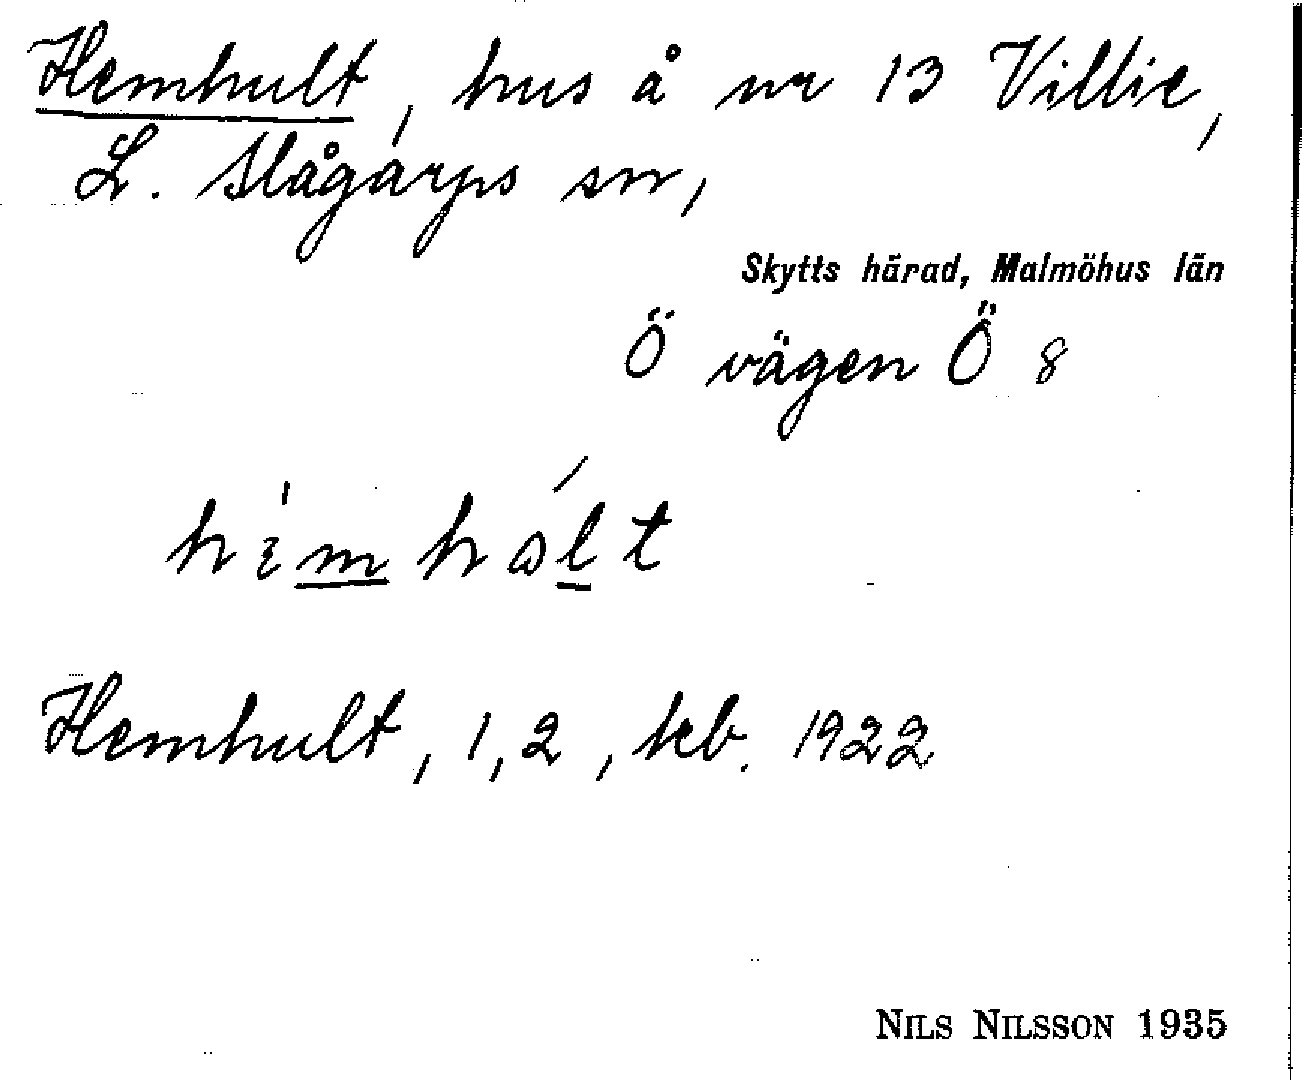 Hemhult, hus å nr 13 Villie,
L. Slågarps sn,
Skytts härad, Malmöhus län
Ö vägen Ö 8
Hemhult, 1, 2, keb. 1922
NILS NILSSON 1935